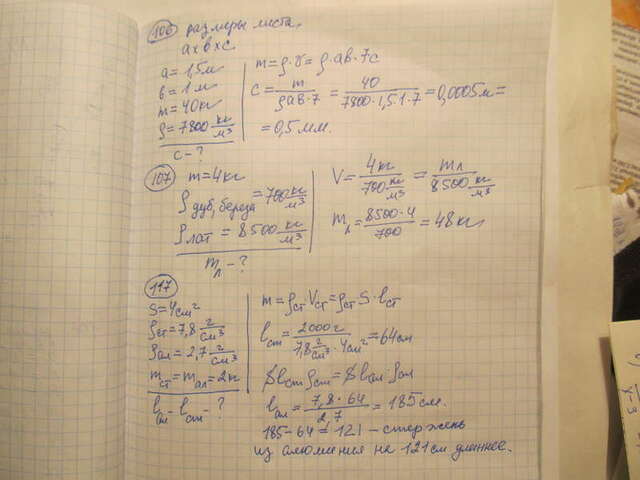 106 размеры листа
a x b x c
a = 1,5 м
b = 1 м
m = 40 кг
ρ = 7800 кг/м³
c - ?
m = ρ·V = ρ·ab·7c
c = m/(ρab·7) = 40/(7800·1,5·1·7) = 0,0005 м =
= 0,5 мм.
107 m = 4 кг
ρ дуб, береза = 700 кг/м³
ρ лат = 8500 кг/м³
m л - ?
V = 4 кг/(700 кг/м³) = m л/(8500 кг/м³)
m л = 8500·4/700 = 48 кг
117
S = 4 см²
ρ ст = 7,8 г/см³
ρ ал = 2,7 г/см³
m ст = m ал = 2 кг
l ал - l ст - ?
m = ρ ст · V ст = ρ ст · S · l ст
l ст = 2000 г/(7,8 г/см³ · 4 см²) = 64 см
S l ст ρ ст = S l ал · ρ ал
l ал = 7,8·64/2,7 = 185 см.
185 - 64 = 121 - стержень
из алюминия на 121 см длиннее.